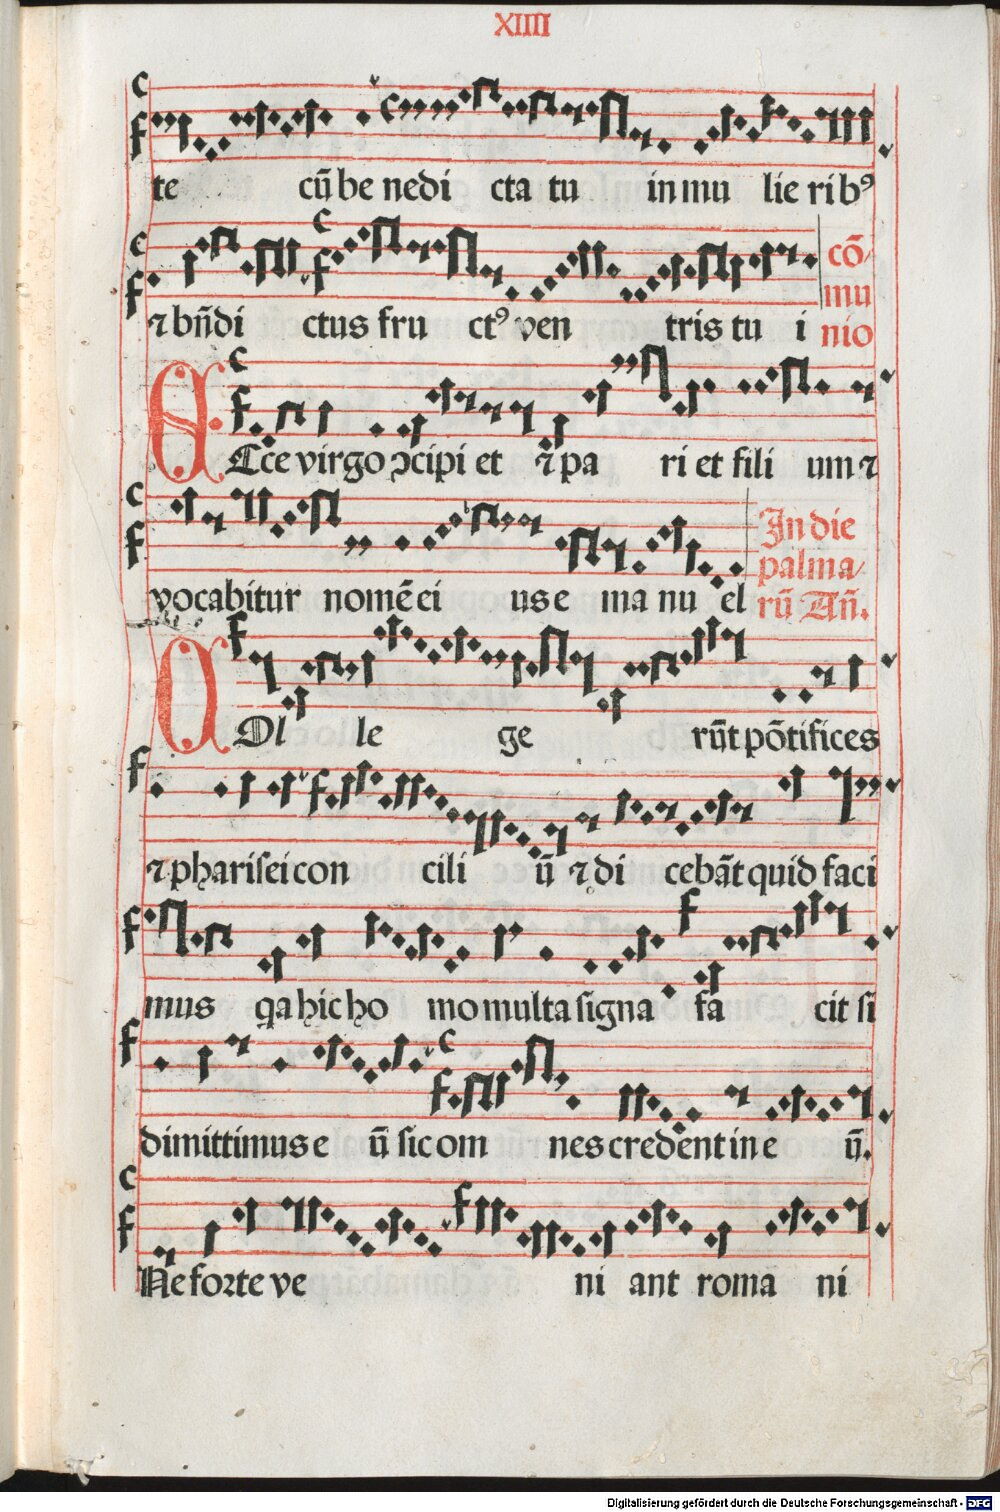 XIIII
te cū be nedi cta tu in mu lie ribꝰ
⁊ bn̄di ctus fru ctꝰ ven tris tu i
cō/
mu
nio
ECce virgo ↄcipi et ⁊ pa ri et fili um ⁊
vocabitur nomē ei us e ma nu el
In die
palma/
rū An̄.
COl le ge rūt pōtifices
⁊ pharisei con cili ū ⁊ di cebāt quid faci
mus qa hic ho mo multa signa fa cit si
dimittimus e ū sic om nes credent in e ū.
Ne forte ve ni ant roma ni
Digitalisierung gefördert durch die Deutsche Forschungsgemeinschaft - DFG